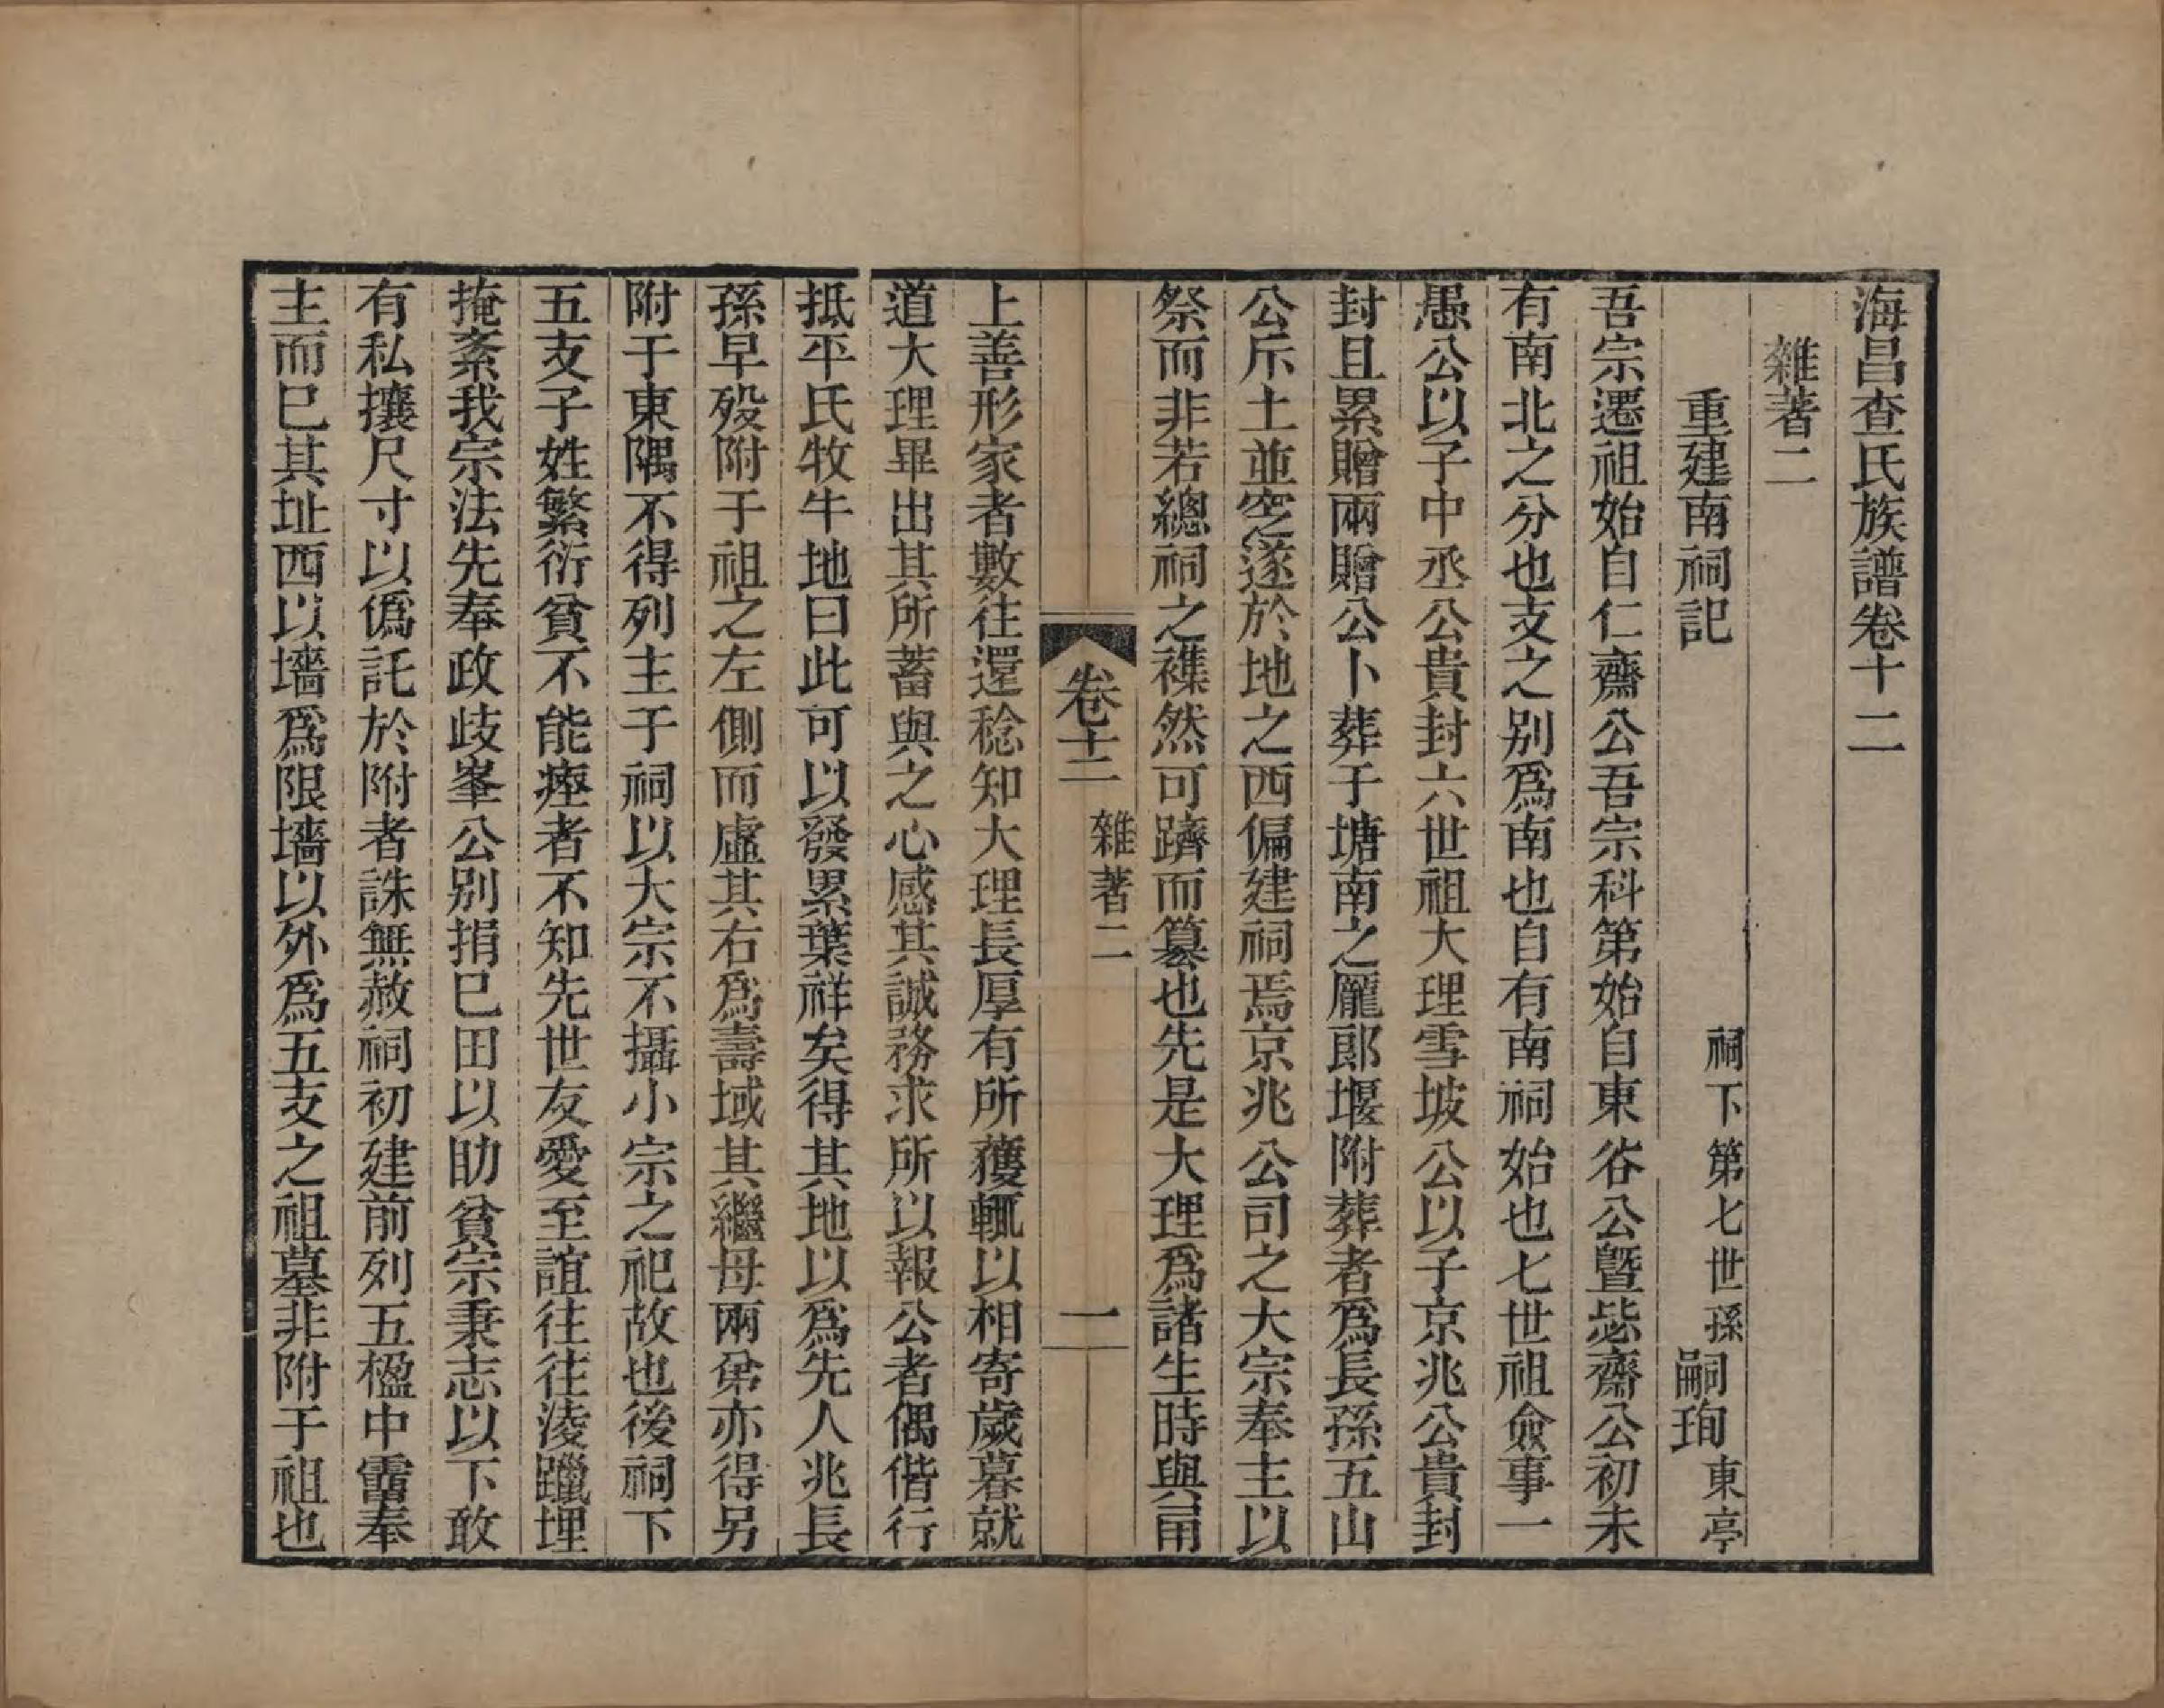 海昌查氏族譜卷十二
雜著二
重建南祠記
祠下第七世孫嗣珣東亭
吾宗遷祖始自仁齋公吾宗科第始自東谷公曁毖齋公初未
有南北之分也支之别爲南也自有南祠始也七世祖僉事一
愚公以子中丞公貴封六世祖大理雪坡公以子京兆公貴封
封且累贈兩贈公卜葬于塘南之龎郎堰附葬者爲長孫五山
公斥土並空遂於地之西偏建祠焉京兆公司之大宗奉主以
祭而非若總祠之襍然可躋而簒也先是大理爲諸生時與甬
卷十二 雜著二 一
上善形家者數往還稔知大理長厚有所獲輒以相寄歲暮就
道大理畢出其所蓄與之心感其誠務求所以報公者偶偕行
抵平氏牧牛地曰此可以發累葉祥矣得其地以爲先人兆長
孫早殁附于祖之左側而虛其右爲壽域其繼母兩弟亦得另
附于東隅不得列主于祠以大宗不攝小宗之祀故也後祠下
五支子姓繁衍貧不能瘞者不知先世友愛至誼往往淩躐埋
掩紊我宗法先奉政歧峯公别捐巳田以助貧宗秉志以下敢
有私攘尺寸以僞託於附者誅無赦祠初建前列五楹中霤奉
主而巳其址西以墻爲限墻以外爲五支之祖墓非附于祖也